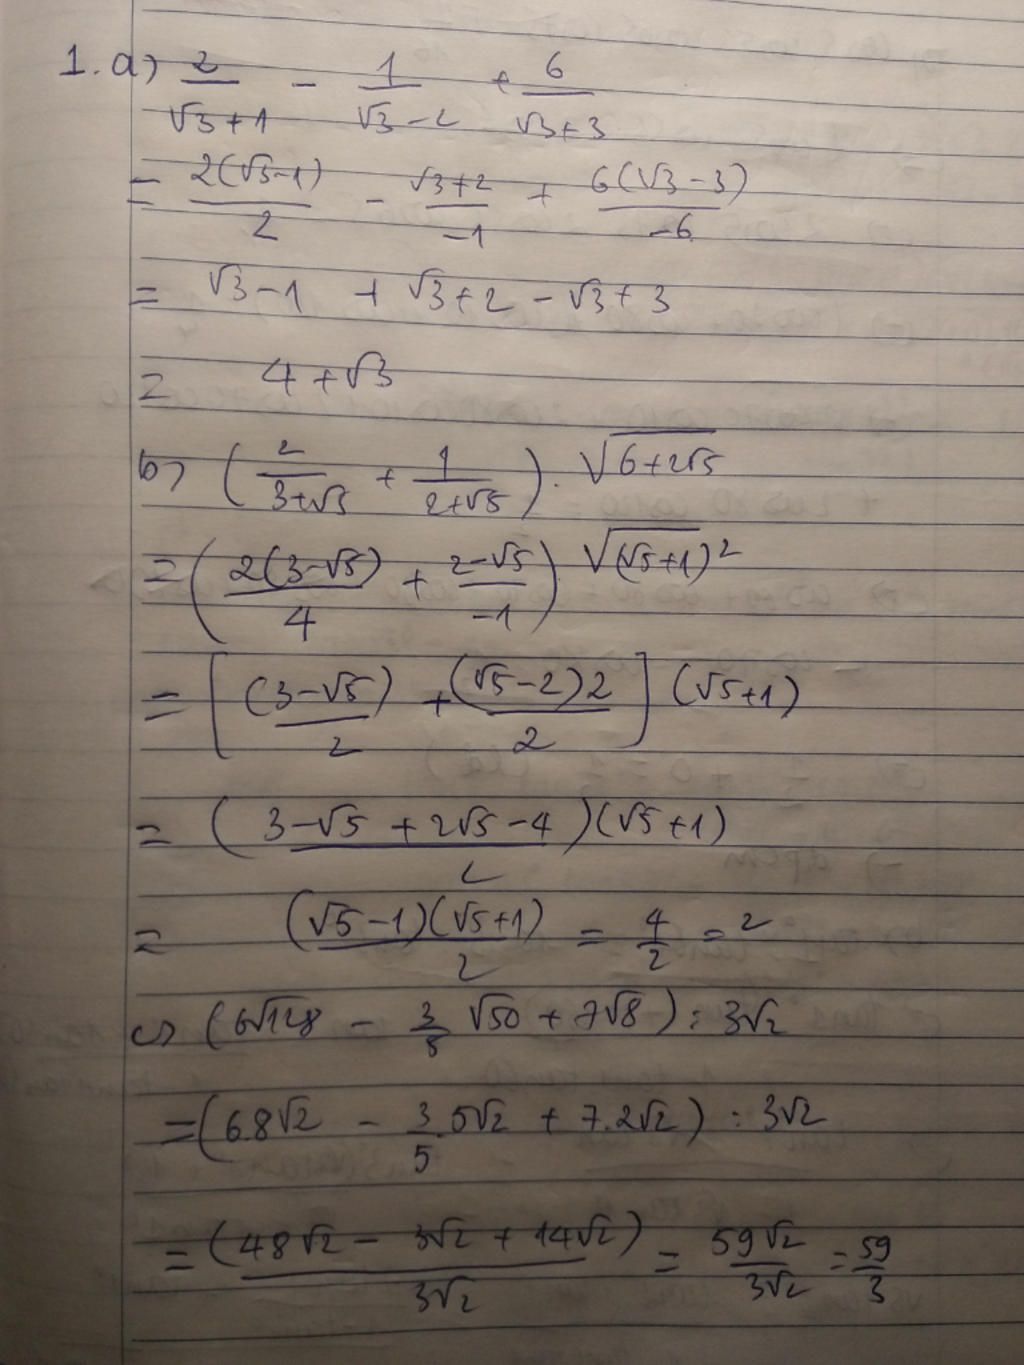 1. a) 2/(√3+1) - 1/(√3-2) + 6/(√3+3)
= 2(√3-1)/2 - (√3+2)/-1 + 6(√3-3)/-6
= √3-1 + √3+2 - √3+3
= 4+√3
b) (2/(3+√5) + 1/(2+√5)) . √(6+2√5)
= (2(3-√5)/4 + (2-√5)/-1) . √(√5+1)²
= [(3-√5)/2 + (√5-2)2/2] (√5+1)
= (3-√5+2√5-4)/2 (√5+1)
= (√5-1)(√5+1)/2 = 4/2 = 2
c) (6√128 - 3/5 √50 + 7√8) : 3√2
= (6.8√2 - 3/5.5√2 + 7.2√2) : 3√2
= (48√2 - 3√2 + 14√2)/3√2 = 59√2/3√2 = 59/3